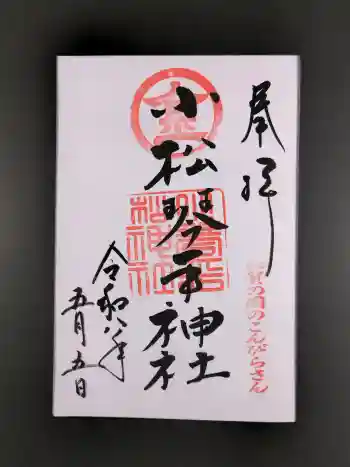 奉拝
賀の国のこんぴらさん
小松琴平神社
金
令和八年
五月五日